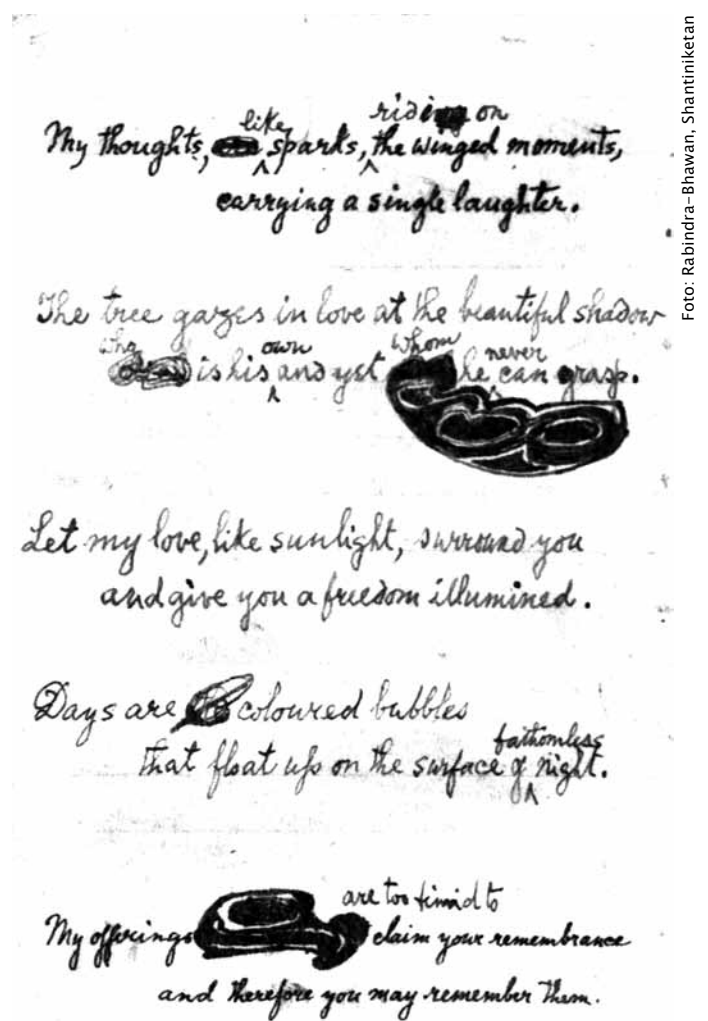 My thoughts, like sparks, riding on the winged moments,
carrying a single laughter.
The tree gazes in love at the beautiful shadow
who is his own and yet whom he never can grasp.
Let my love, like sunlight, surround you
and give you a freedom illumined.
Days are coloured bubbles
that float up on the surface of fathomless night.
My offerings are too timid to claim your remembrance
and therefore you may remember them.
Foto: Rabindra-Bhawan, Shantiniketan